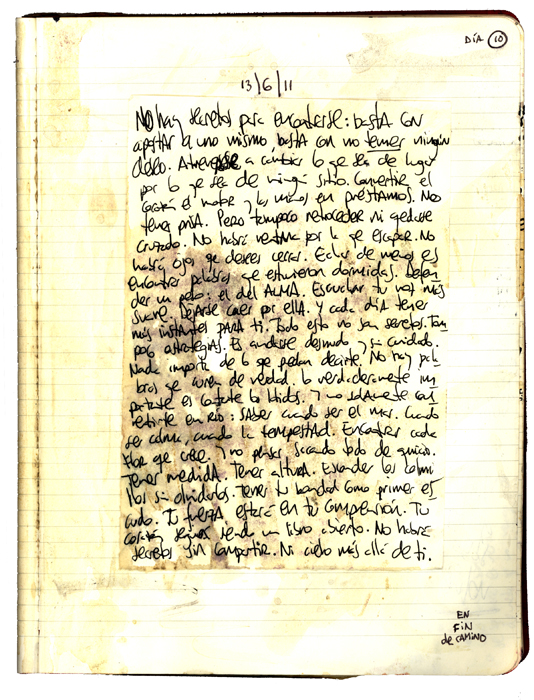 DÍA 10
13/6/11
No hay secretos para encontrarse: basta con
apostar a uno mismo, basta con no temer ningún
cielo. Atreverse a cambiar lo que sea de lugar
por lo que sea de ningún sitio. Convertir el
corazón el motor y las manos en préstamos. No
tener prisa. Pero tampoco retroceder ni quedarse
cruzado. No habrá ventana por la que escapar. No
habrá ojos que desees cerrar. Echar de menos es
encontrar palabras que estuvieron dormidas. Defen
der un peso: el del ALMA. Escuchar tu voz más
suave. Dejarse caer por ella. Y cada día tener
más instantes PARA ti. Todo esto no son secretos. Tam
poco estrategias. Es quedarse desnudo y sin cuidado.
Nada importa de lo que puedan decirte. No hay pala
bras que curen de verdad. Lo verdaderamente im
portante es contarte los latidos. Y no solamente con
vertirte en Río: SABER cuando ser el mar. Cuando
ser calma, cuando la tempestad. Encontrar cada
flor que crece y no pensar sacando todo de quicio.
Tener medida. Tener altura. Esconder los colmi
llos sin olvidarlos. Tener tu bondad como primer es
cudo. Tu fuerza estará en tu comprensión. Tu
corazón seguirá siendo un libro abierto. No habrá
secretos sin compartir. Ni cielo más allá de ti.
EN
FIN
de CAMINO